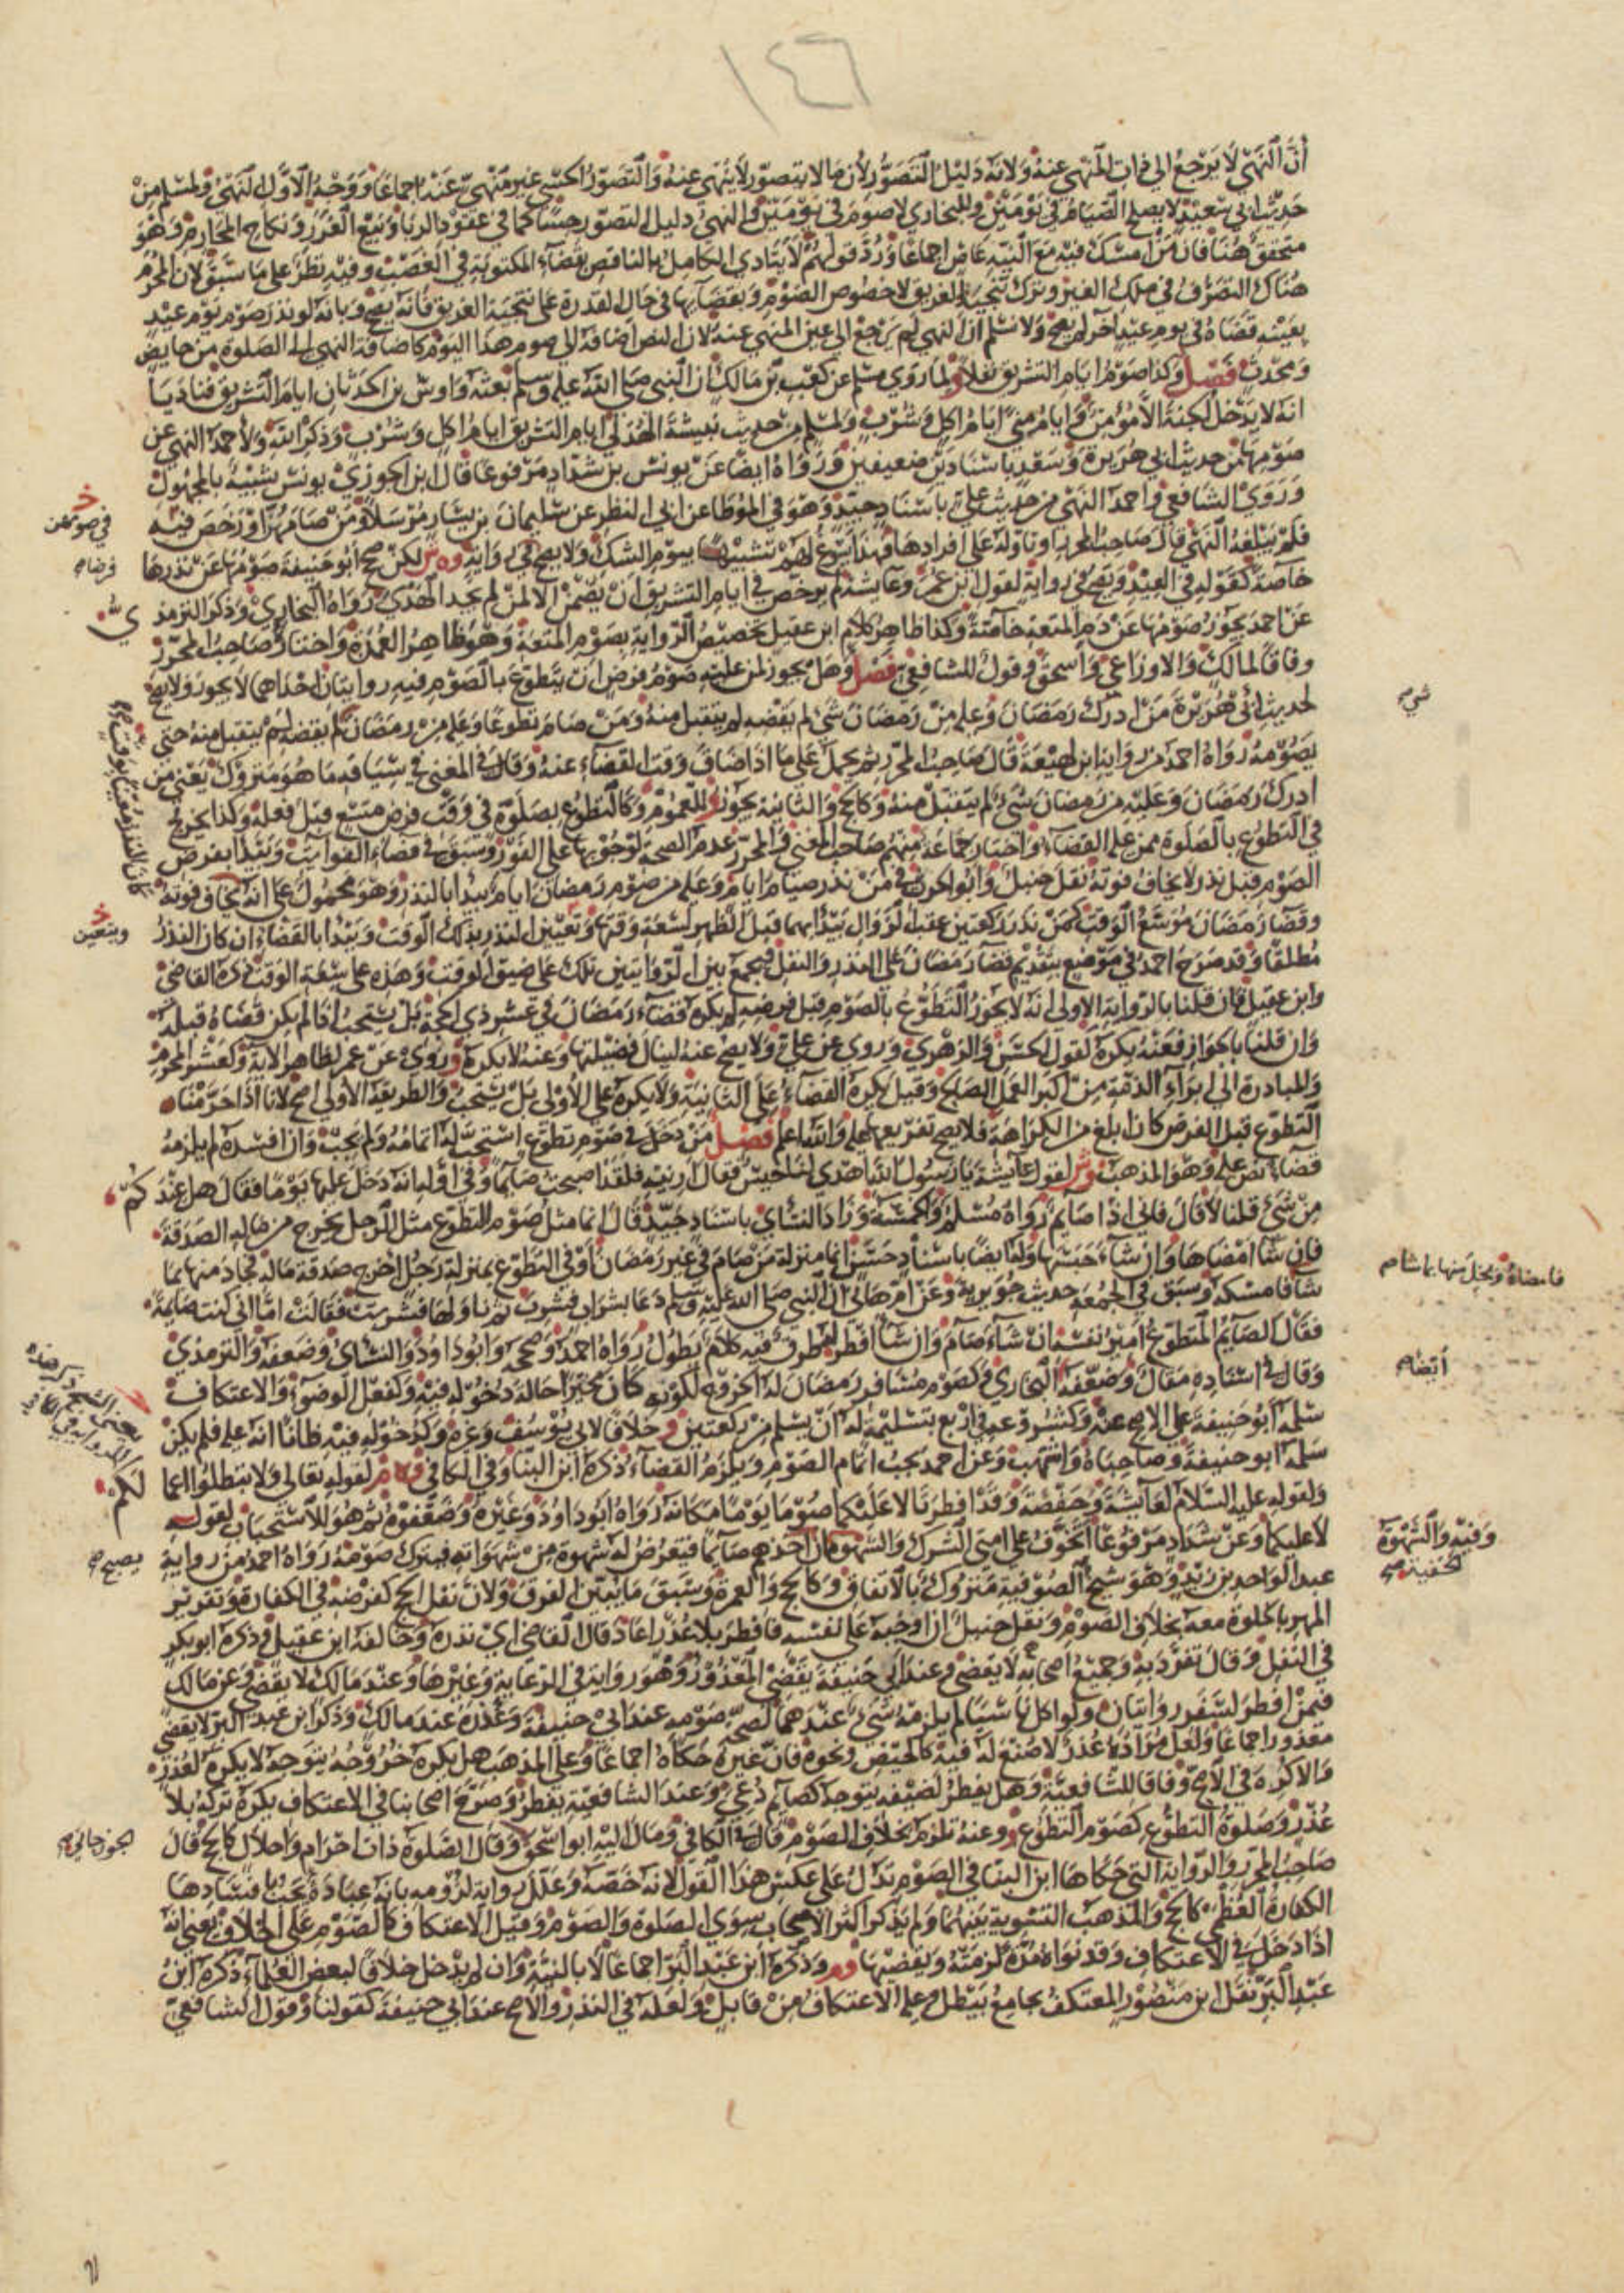 ١٤٦
أن النهي لا يرجع إلى ذات المنهي عنه ولأنه دليل التصور لأن ما لا يتصور لا ينهى عنه والتصور الحسي غير منهي عنه إجماعا ووجه الأول النهي ولمسلم من
حديث أبي سعيد لا يصلح الصيام في يومين وللبخاري لا صوم في يومين والنهي دليل التصور حسا كما في عقود الربا وبيع الغرر ونكاح المحارم وهو
متحقق هنا فإن من أمسك فيه مع النية عاص إجماعا ورد قولهم لا يتادى الكامل بالناقص بقضاء المكتوبة في الغصب وفيه نظر على ما سبق لأن المحرم
هناك التصرف في ملك الغير وترك تنجية الغريق لا خصوص الصوم وبقضائها في حال القدرة على تنجية الغريق فإنه يصح وبأنه لو نذر صوم يوم عيد
بعينه قضاه في يوم عيد آخر لم يصح ولا نسلم أن النهي لم يرجع إلى عين المنهي عنه لأن النص أضافه إلى صوم هذا اليوم كإضافة النهي إلى الصلوة من حايض
ومحدث فصل وكذا صوم أيام التشريق نفلا ولما روى مسلم عن كعب بن مالك أن النبي صلى الله عليه وسلم بعثه وأوس بن الحدثان أيام التشريق فناديا
أنه لا يدخل الجنة إلا مؤمن وأيام منى أيام أكل وشرب ولمسلم من حديث نبيشة الهذلي أيام التشريق أيام أكل وشرب وذكر الله ولأحمد النهي عن
صومها من حديث أبي هريرة وسعد بإسنادين ضعيفين ورواه أيضا عن يونس بن شداد مرفوعا قال ابن الجوزي يونس شبيه بالمجهول
وروى الشافعي وأحمد النهي من حديث علي بإسناد جيد وهو في الموطأ عن أبي النضر عن سليمان بن يسار مرسلا ومن صامها أو رخص فيه
فلم يبلغه النهي قال صاحب المحرر أو تأوله على إفرادها
خاصة كقوله في العيد ويصح في رواية لقول ابن عمر وعايشة لم يرخص في أيام التشريق أن يصمن إلا لمن لم يجد الهدي رواه البخاري وذكر الترمذي
عن أحمد يجوز صومها عن دم المتعة خاصة وكذا ظاهر كلام ابن عقيل تخصيص الرواية بصوم المتعة وهو ظاهر العمدة واختاره صاحب المحرر
وفاقا لمالك والأوزاعي وإسحق وقول للشافعي فصل وهل يجوز لمن عليه صوم فرض أن يتطوع بالصوم فيه روايتان إحداهما لا يجوز ولا يصح
لحديث أبي هريرة من أدرك رمضان وعليه من رمضان شيء لم يقضه لم يتقبل منه ومن صام تطوعا وعليه من رمضان لم يقضه لم يتقبل منه حتى
يصومه رواه أحمد من رواية ابن لهيعة قال صاحب المحرر ثم يحمل على ما إذا ضاق وقت القضاء عنه وقال في المغني في سياقه ما هو متروك يعني من
أدرك رمضان وعليه من رمضان شيء لم يتقبل منه وكالحج والثانية يجوز للعموم وكالتطوع بصلوة في وقت فرض متسع قبل فعله وكذا يخرج
في التطوع بالصلوة ممن عليه القضاء واختار جماعة منهم صاحب المغني والمحرر عدم الصحة لوجوبها على الفور وسبق في قضاء الفوايت ويبدأ بفرض
الصوم قبل نذر لا يخاف فوته نقل حنبل وأبو الحرث في من نذر صيام أيام وعليه من صوم رمضان أيام يبدأ بالنذر وهو محمول على أنه يخاف فوته
وقضاء رمضان موسع الوقت كمن نذر ركعتين عقيب الزوال يبدأ بهما قبل الظهر لسعة وقتها وتعيين النذر بذلك الوقت ويبدأ بالقضاء إن كان النذر
مطلقا وقد صرح أحمد في موضع بتقديم قضاء رمضان على النذر والنفل فيجمع بين الروايتين تلك على ضيق الوقت وهذه على سعة الوقت ذكره القاضي
وابن عقيل فإن قلنا بالرواية الأولى أنه لا يجوز التطوع بالصوم قبل فرضه لم يكره قضاء رمضان في عشر ذي الحجة بل يستحب إذا لم يكن قضاه قبله
وإن قلنا بالجواز فعنه يكره لقول الحسن والزهري وروي عن علي ولا يصح عنه لينال فضيلتها وعنه لا يكره وروي عن عمر لظاهر الآية وكعشر المحرم
وللمبادرة إلى إبراء الذمة من أكبر العمل الصالح وقيل يكره القضاء على الثانية ولا يكره على الأولى بل يستحب والطريقة الأولى أصح لأنا إذا حرمنا
التطوع قبل الفرض كان أبلغ من الكراهة فلا يصح تفريعها عليه والله أعلم فصل من دخل في صوم تطوع استحب له إتمامه ولم يجب وإن أفسده لم يلزمه
قضاء نص عليه وهو المذهب وش لقول عايشة يا رسول الله أهدي لنا حيس فقال أرنيه فلقد أصبحت صايما وفي أوله أنه دخل عليها يوما فقال هل عندكم
من شيء قلنا لا قال فإني إذا صايم رواه مسلم والخمسة وزاد النسائي بإسناد جيد قال إنما مثل صوم التطوع مثل الرجل يخرج من ماله الصدقة
فإن شاء أمضاها وإن شاء حبسها وله أيضا بإسناد حسن إنما منزلة من صام في غير رمضان أو في التطوع بمنزلة رجل أخرج صدقة ماله فجاد منها بما
شاء فأمسكه وسبق في الجمعة حديث جويرية وعن أم هانئ أن النبي صلى الله عليه وسلم دعا بشراب فشرب ثم ناولها فشربت فقالت أما إني كنت صايمة
فقال الصايم المتطوع أمير نفسه إن شاء صام وإن شاء أفطر له طرق فيه كلام يطول رواه أحمد وصححه وأبو داود والنسائي وضعفه والترمذي
وقال في إسناده مقال وضعفه البخاري وكصوم مسافر رمضان له الخروج لكونه كان مخيرا حالة دخوله فيه وكفعل الوضوء والاعتكاف
سلمه أبو حنيفة على الأصح عنه وكشروعه في أربع بتسليمة له أن يسلم من ركعتين خلافا لأبي يوسف وغيره وكدخوله فيه ظانا أنه عليه فلم يكن
سلمه أبو حنيفة وصاحباه وأشهب وعن أحمد يجب إتمام الصوم ويلزم القضاء ذكره ابن البنا وفي الكافي لقوله تعالى ولا تبطلوا أعمالكم
ولقوله عليه السلام لعايشة وحفصة وقد أفطرتا لا عليكما صوما يوما مكانه رواه أبو داود وغيره وضعفوه ثم هو للاستحباب لقوله
لا عليكما وعن شداد مرفوعا أتخوف على أمتي الشرك والشهوة أحدهم صايما فتعرض له شهوة من شهواته فيترك صومه رواه أحمد من رواية
عبد الواحد بن زيد وهو شيخ الصوفية متروك بالاتفاق وكالحج والعمرة وسبق ما يبين الفرق ولأن نفل الحج كفرضه في الكفارة وتقرير
المهر بالخلوة معه بخلاف الصوم ونقل حنبل إن أوجبه على نفسه فأفطر بلا عذر أعاد قال القاضي أي نذره وخالفه ابن عقيل وذكره أبو بكر
في النفل وقال تفرد به وجميع أصحابه لا يقضي وعند أبي حنيفة يقضي المعذور وهو رواية في الرعاية وغيرها وعند مالك لا يقضي وعن مالك
فيمن أفطر لسفر روايتان ولو أكل ناسيا لم يلزمه شيء عندهما لصحة صومه عند أبي حنيفة وعذره عند مالك وذكر ابن عبد البر لا يقضي
معذور إجماعا ولعل مراده عذر لا صنع له فيه كالحيض ونحوه فإن غيره حكاه إجماعا وعلى المذهب هل يكره خروجه يتوجه لا يكره لعذر
وإلا كره في الأصح وفاقا للشافعية وهل يفطر لضيفه يتوجه كصايم دعي وعند الشافعية يفطر وصرح أصحابنا في الاعتكاف يكره تركه بلا
عذر وصلوة التطوع كصوم التطوع وعنه تلزم بخلاف الصوم قال في الكافي ومال إليه أبو إسحق وقال الصلوة ذات إحرام وإحلال كالحج قال
صاحب المحرر والرواية التي حكاها ابن البنا في الصوم تدل على عكس هذا القول لأنه خصه وعلل رواية لزومه بأنه عبادة تجب بإفسادها
الكفارة العظمى كالحج والمذهب التسوية بينهما ولم يذكر أكثر الأصحاب سوى الصلوة والصوم وقيل الاعتكاف كالصوم على الخلاف يعني أنه
إذا دخل في الاعتكاف وقد نواه مدة لزمته ويقضيها وم وذكره ابن عبد البر إجماعا لا بالنية وإن لم يدخل خلافا لبعض العلماء ذكره ابن
عبد البر نقل ابن منصور المعتكف بجامع يبطل وعليه الاعتكاف من قابل ولعله في النذر والأصح عند أبي حنيفة كقولنا وقول الشافعي
في صومهن
فرضا
ويتعين
فأمضاه وبخل منها بما شا
أيضا
وفيه والشهوة
الخفية
يصبح